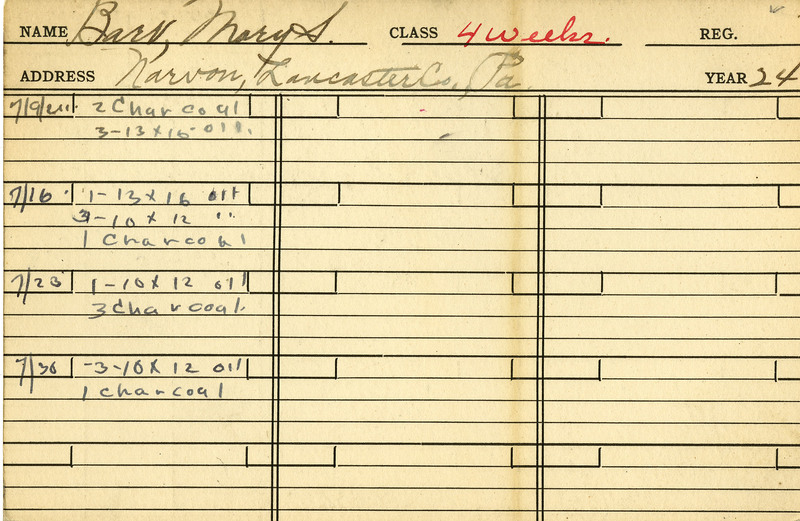 NAME Barr, Mary S. CLASS 4 Weeks. REG.
ADDRESS Narvon, Lancaster Co., Pa. YEAR 24
7/9/24 2 Charcoal
3-13 x 16 oil.
7/16 1-13 x 16 oil
3-10 x 12 "
1 Charcoal
7/23 1-10 x 12 oil
3 Charcoal.
7/30 -3-10 x 12 oil
1 charcoal